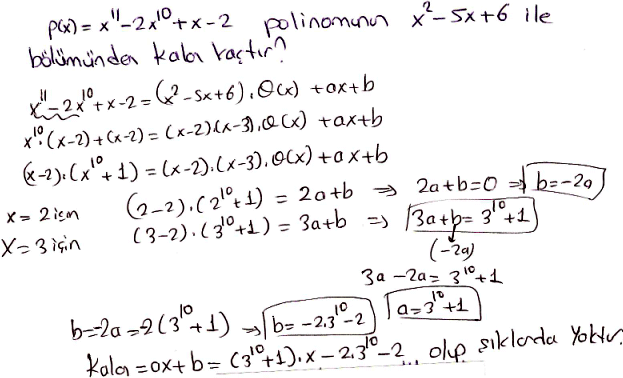 P(x) = x¹¹-2x¹⁰+x-2 polinomunun x²-5x+6 ile
bölümünden kalan kaçtır?
x¹¹-2x¹⁰+x-2 = (x²-5x+6).Q(x) +ax+b
x¹⁰.(x-2)+(x-2) = (x-2).(x-3).Q(x) +ax+b
(x-2).(x¹⁰+1) = (x-2).(x-3).Q(x)+ax+b
x=2 için (2-2).(2¹⁰+1) = 2a+b ⇒ 2a+b=0 ⇒ b=-2a
x=3 için (3-2).(3¹⁰+1) = 3a+b ⇒ 3a+b= 3¹⁰+1
(-2a)
3a-2a= 3¹⁰+1
b=-2a=-2(3¹⁰+1) → b= -2.3¹⁰-2 a=3¹⁰+1
Kalan=ax+b= (3¹⁰+1).x-2.3¹⁰-2 .. olup şıklarda yoktur.